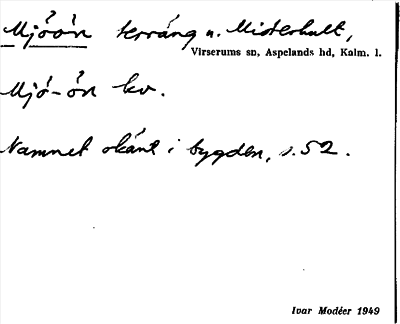 Mjóòn terräng u. Misterhult,
Virserums sn, Aspelands hd, Kalm. l.
Mjó-òn kv.
Namnet okänt i bygden, s. 52.
Ivar Modéer 1949